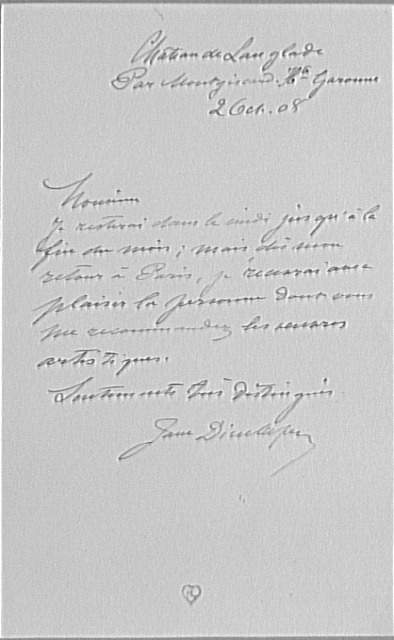 Château de Langlade
Par Montgiscard. Hte Garonne
2 Oct. 08
Monsieur
Je resterai dans le midi jusqu'à la
fin du mois; mais dès mon
retour à Paris, je recevrai avec
plaisir la personne dont vous
me recommandez les œuvres
artistiques.
Sentiments très distingués.
Jane Dieulafoy